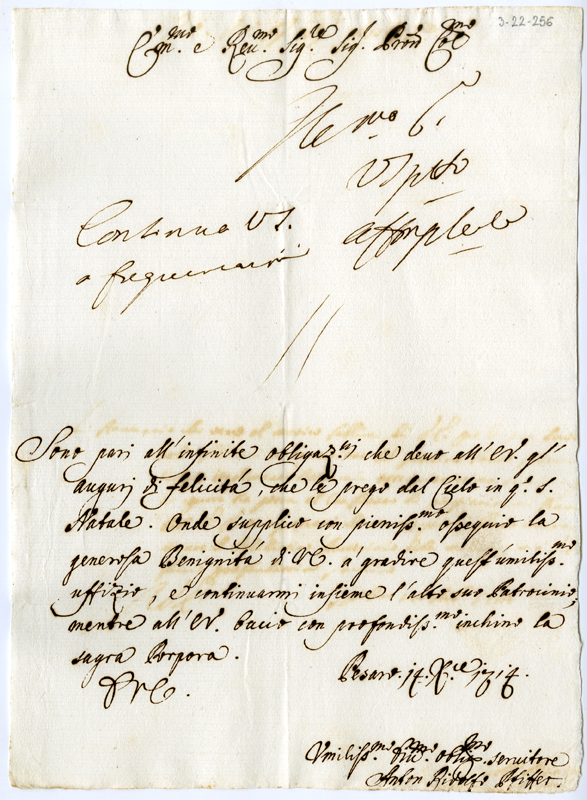 3-22-256
Em.mo e Reu.mo Sig.re Sig.
Continua VS.
a
Sono pari all'infinite obligaz.ni che deuo all'EV. gl'
augurj di felicità, che le prego dal Cielo in q.o S.
Natale. Onde supplico con pieniss.mo ossequio la
generosa Benignità di VE. à gradire quest'umiliss.mo
uffizio, e continuarmi insieme l'alto suo Patrocinio,
mentre all'EV. bacio con profondiss.mo inchino la
sagra Porpora.
Pesaro 14. X.bre 1714.
VE.
Vmiliss.mo seruitore
Anton Ridolfo